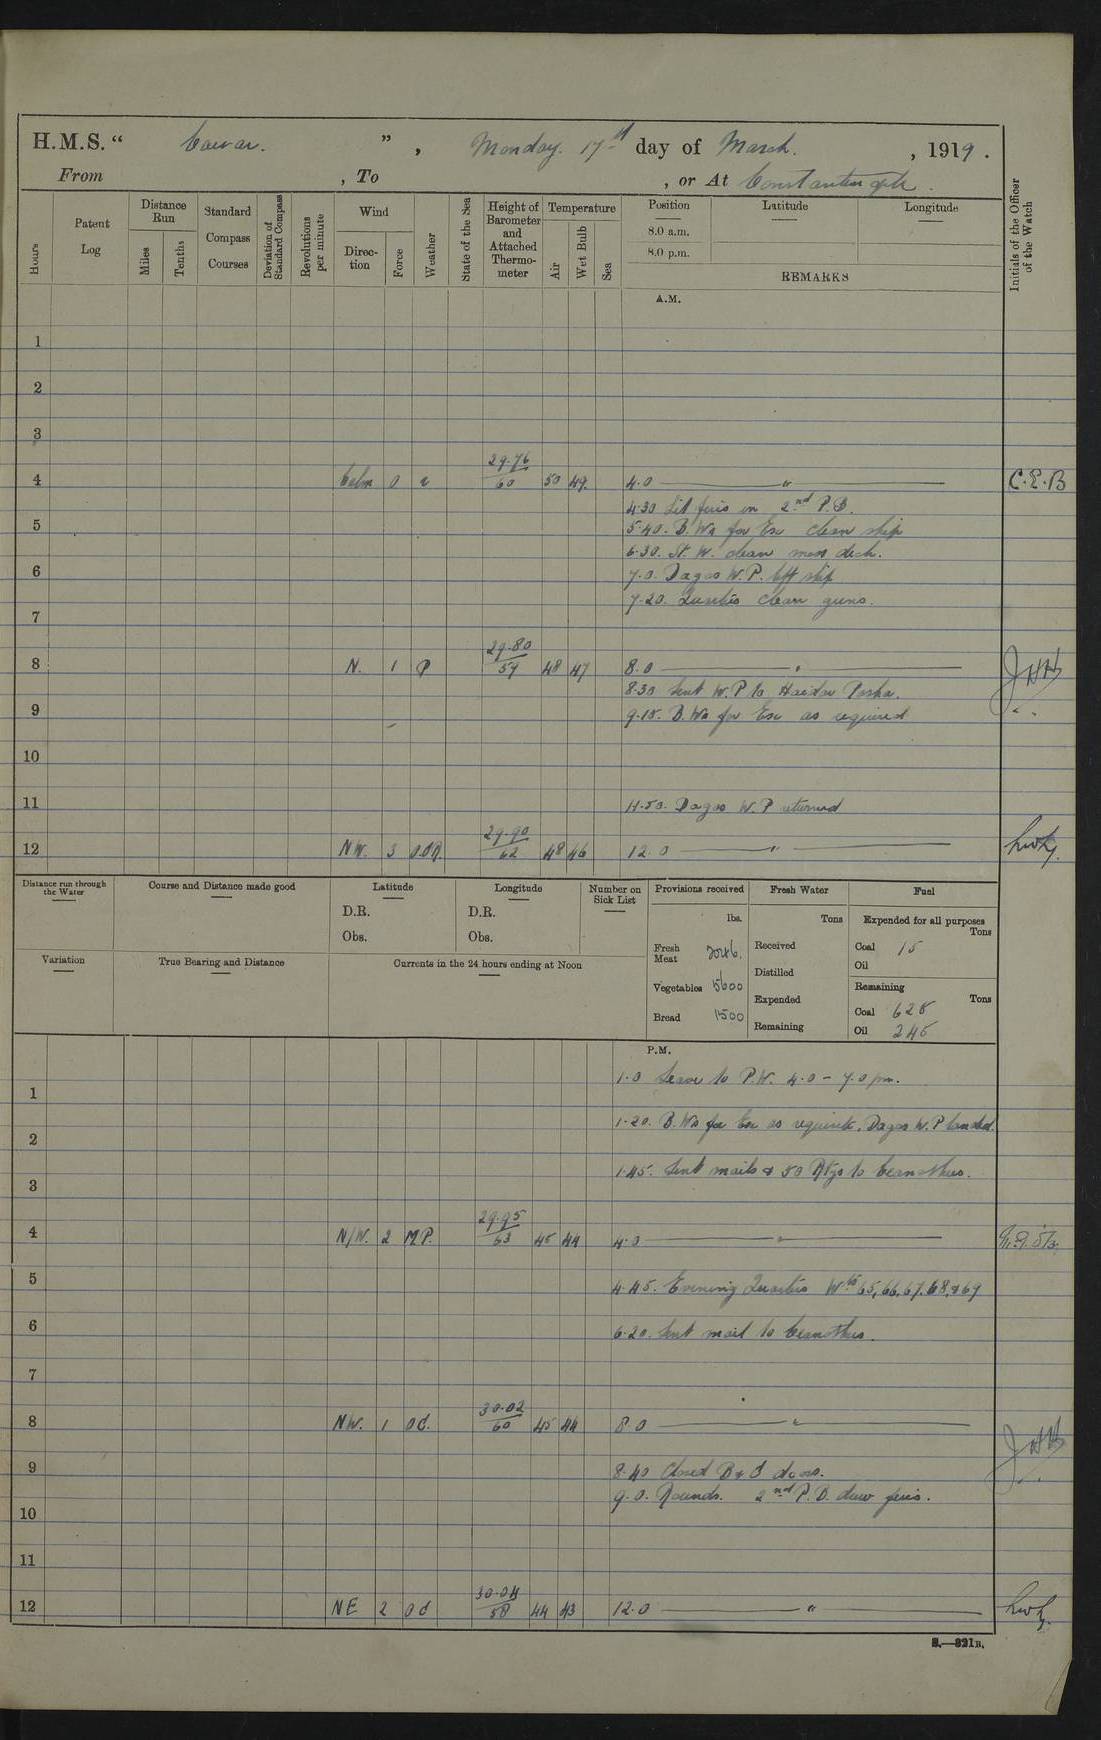 H.M.S. " Caesar. " , Monday. 17th day of March. , 1919.
From , To , or At Constantinople.
Hours
Patent Log
Distance Run
Miles
Tenths
Standard Compass Courses
Deviation of Standard Compass
Revolutions per minute
Wind
Direction
Force
Weather
State of the Sea
Height of Barometer and Attached Thermometer
Temperature
Air
Wet Bulb
Sea
Position
8.0 a.m.
8.0 p.m.
Latitude
Longitude
REMARKS
Initials of the Officer of the Watch
A.M.
1
2
3
4 Calm 0 29.76/60 50 49 4.0 " C.E.B
4.30 Lit fires in 2nd P.B.
5 5.40. B. Wn for Ex clean ship
6.30. St. W. clean mess deck.
6 7.0. Dagos W.P. left ship
7.20. Quarters clean guns.
7
8 N. 1 P 29.80/59 48 47 8.0 " JHH
8.30 Sent W.P. to Haidar Pasha.
9 9.15. B. Wn for Ex as required
10
11 11.50. Dagos W.P returned
12 NW. 3 29.90/62 48 46 12.0 "
Distance run through the Water
Course and Distance made good
Latitude
D.R.
Obs.
Longitude
D.R.
Obs.
Number on Sick List
Variation
True Bearing and Distance
Currents in the 24 hours ending at Noon
Provisions received
lbs.
Fresh Meat 2046.
Vegetables 1600
Bread 1500
Fresh Water
Tons
Received
Distilled
Expended
Remaining
Fuel
Expended for all purposes
Tons
Coal 15
Oil
Remaining
Tons
Coal 628
Oil 245
P.M.
1.0 Leave to P.W. 4.0 - 7.0 pm.
1
1.20. B. Wn for Ex as requisite. Dagos W.P landed.
2
1.45. Sent mails & 50 to Ceanothus.
3
4 N/W. 2 M P. 29.95/63 45 44 4.0 "
5 4.45. Evening Quarters 65, 66, 67, 68, & 69
6 6.20. Sent mail to Ceanothus.
7
8 NW. 1 Od. 30.02/60 45 44 8.0 " JHH
9 8.40 Closed B & C doors.
9.0. Rounds. 2nd P.B. draw fires.
10
11
12 NE 2 Od 30.04/58 44 43 12.0 "
S.—321B.